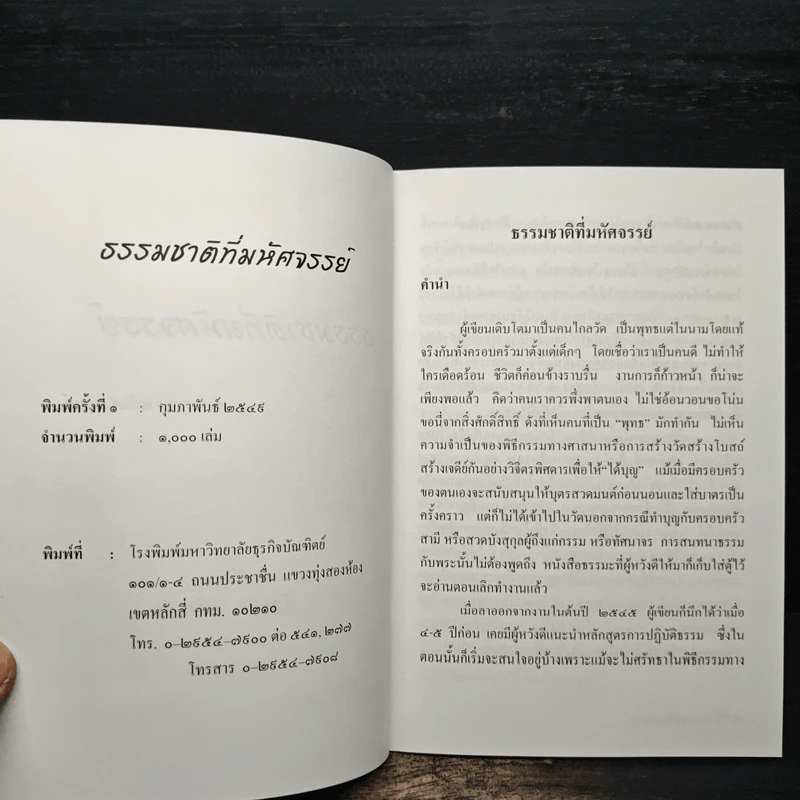 ธรรมชาติที่มหัศจรรย์
พิมพ์ครั้งที่ ๑ : กุมภาพันธ์ ๒๕๔๙
จำนวนพิมพ์ : ๑,๐๐๐ เล่ม
พิมพ์ที่ : โรงพิมพ์มหาวิทยาลัยธุรกิจบัณฑิตย์
๑๐๑/๑-๔ ถนนประชาชื่น แขวงทุ่งสองห้อง
เขตหลักสี่ กทม. ๑๐๒๑๐
โทร. ๐-๒๙๕๔-๗๙๐๐ ต่อ ๕๔๑, ๒๗๗
โทรสาร ๐-๒๙๕๔-๗๙๐๘
ธรรมชาติที่มหัศจรรย์
คำนำ
ผู้เขียนเติบโตมาเป็นคนไกลวัด เป็นพุทธแต่ในนามโดยแท้
จริงกันทั้งครอบครัวมาตั้งแต่เด็กๆ โดยเชื่อว่าเราเป็นคนดี ไม่ทำให้
ใครเดือดร้อน ชีวิตก็ค่อนข้างราบรื่น งานการก็ก้าวหน้า ก็น่าจะ
เพียงพอแล้ว คิดว่าคนเราควรพึ่งพาตนเอง ไม่ใช่อ้อนวอนขอโน่น
ขอนี่จากสิ่งศักดิ์สิทธิ์ ดังที่เห็นคนที่เป็น “พุทธ” มักทำกัน ไม่เห็น
ความจำเป็นของพิธีกรรมทางศาสนาหรือการสร้างวัดสร้างโบสถ์
สร้างเจดีย์กันอย่างวิจิตรพิศดารเพื่อให้“ได้บุญ” แม้เมื่อมีครอบครัว
ของตนเองจะสนับสนุนให้บุตรสวดมนต์ก่อนนอนและใส่บาตรเป็น
ครั้งคราว แต่ก็ไม่ได้เข้าไปในวัดนอกจากกรณีทำบุญกับครอบครัว
สามี หรือสวดบังสุกุลผู้ถึงแก่กรรม หรือทัศนาจร การสนทนาธรรม
กับพระนั้นไม่ต้องพูดถึง หนังสือธรรมะที่ผู้หวังดีให้มาก็เก็บใส่ตู้ไว้
จะอ่านตอนเลิกทำงานแล้ว
เมื่อลาออกจากงานในต้นปี ๒๕๔๕ ผู้เขียนก็นึกได้ว่าเมื่อ
๔-๕ ปีก่อน เคยมีผู้หวังดีแนะนำหลักสูตรการปฏิบัติธรรม ซึ่งใน
ตอนนั้นก็เริ่มจะสนใจอยู่บ้างเพราะแม้จะไม่ศรัทธาในพิธีกรรมทาง